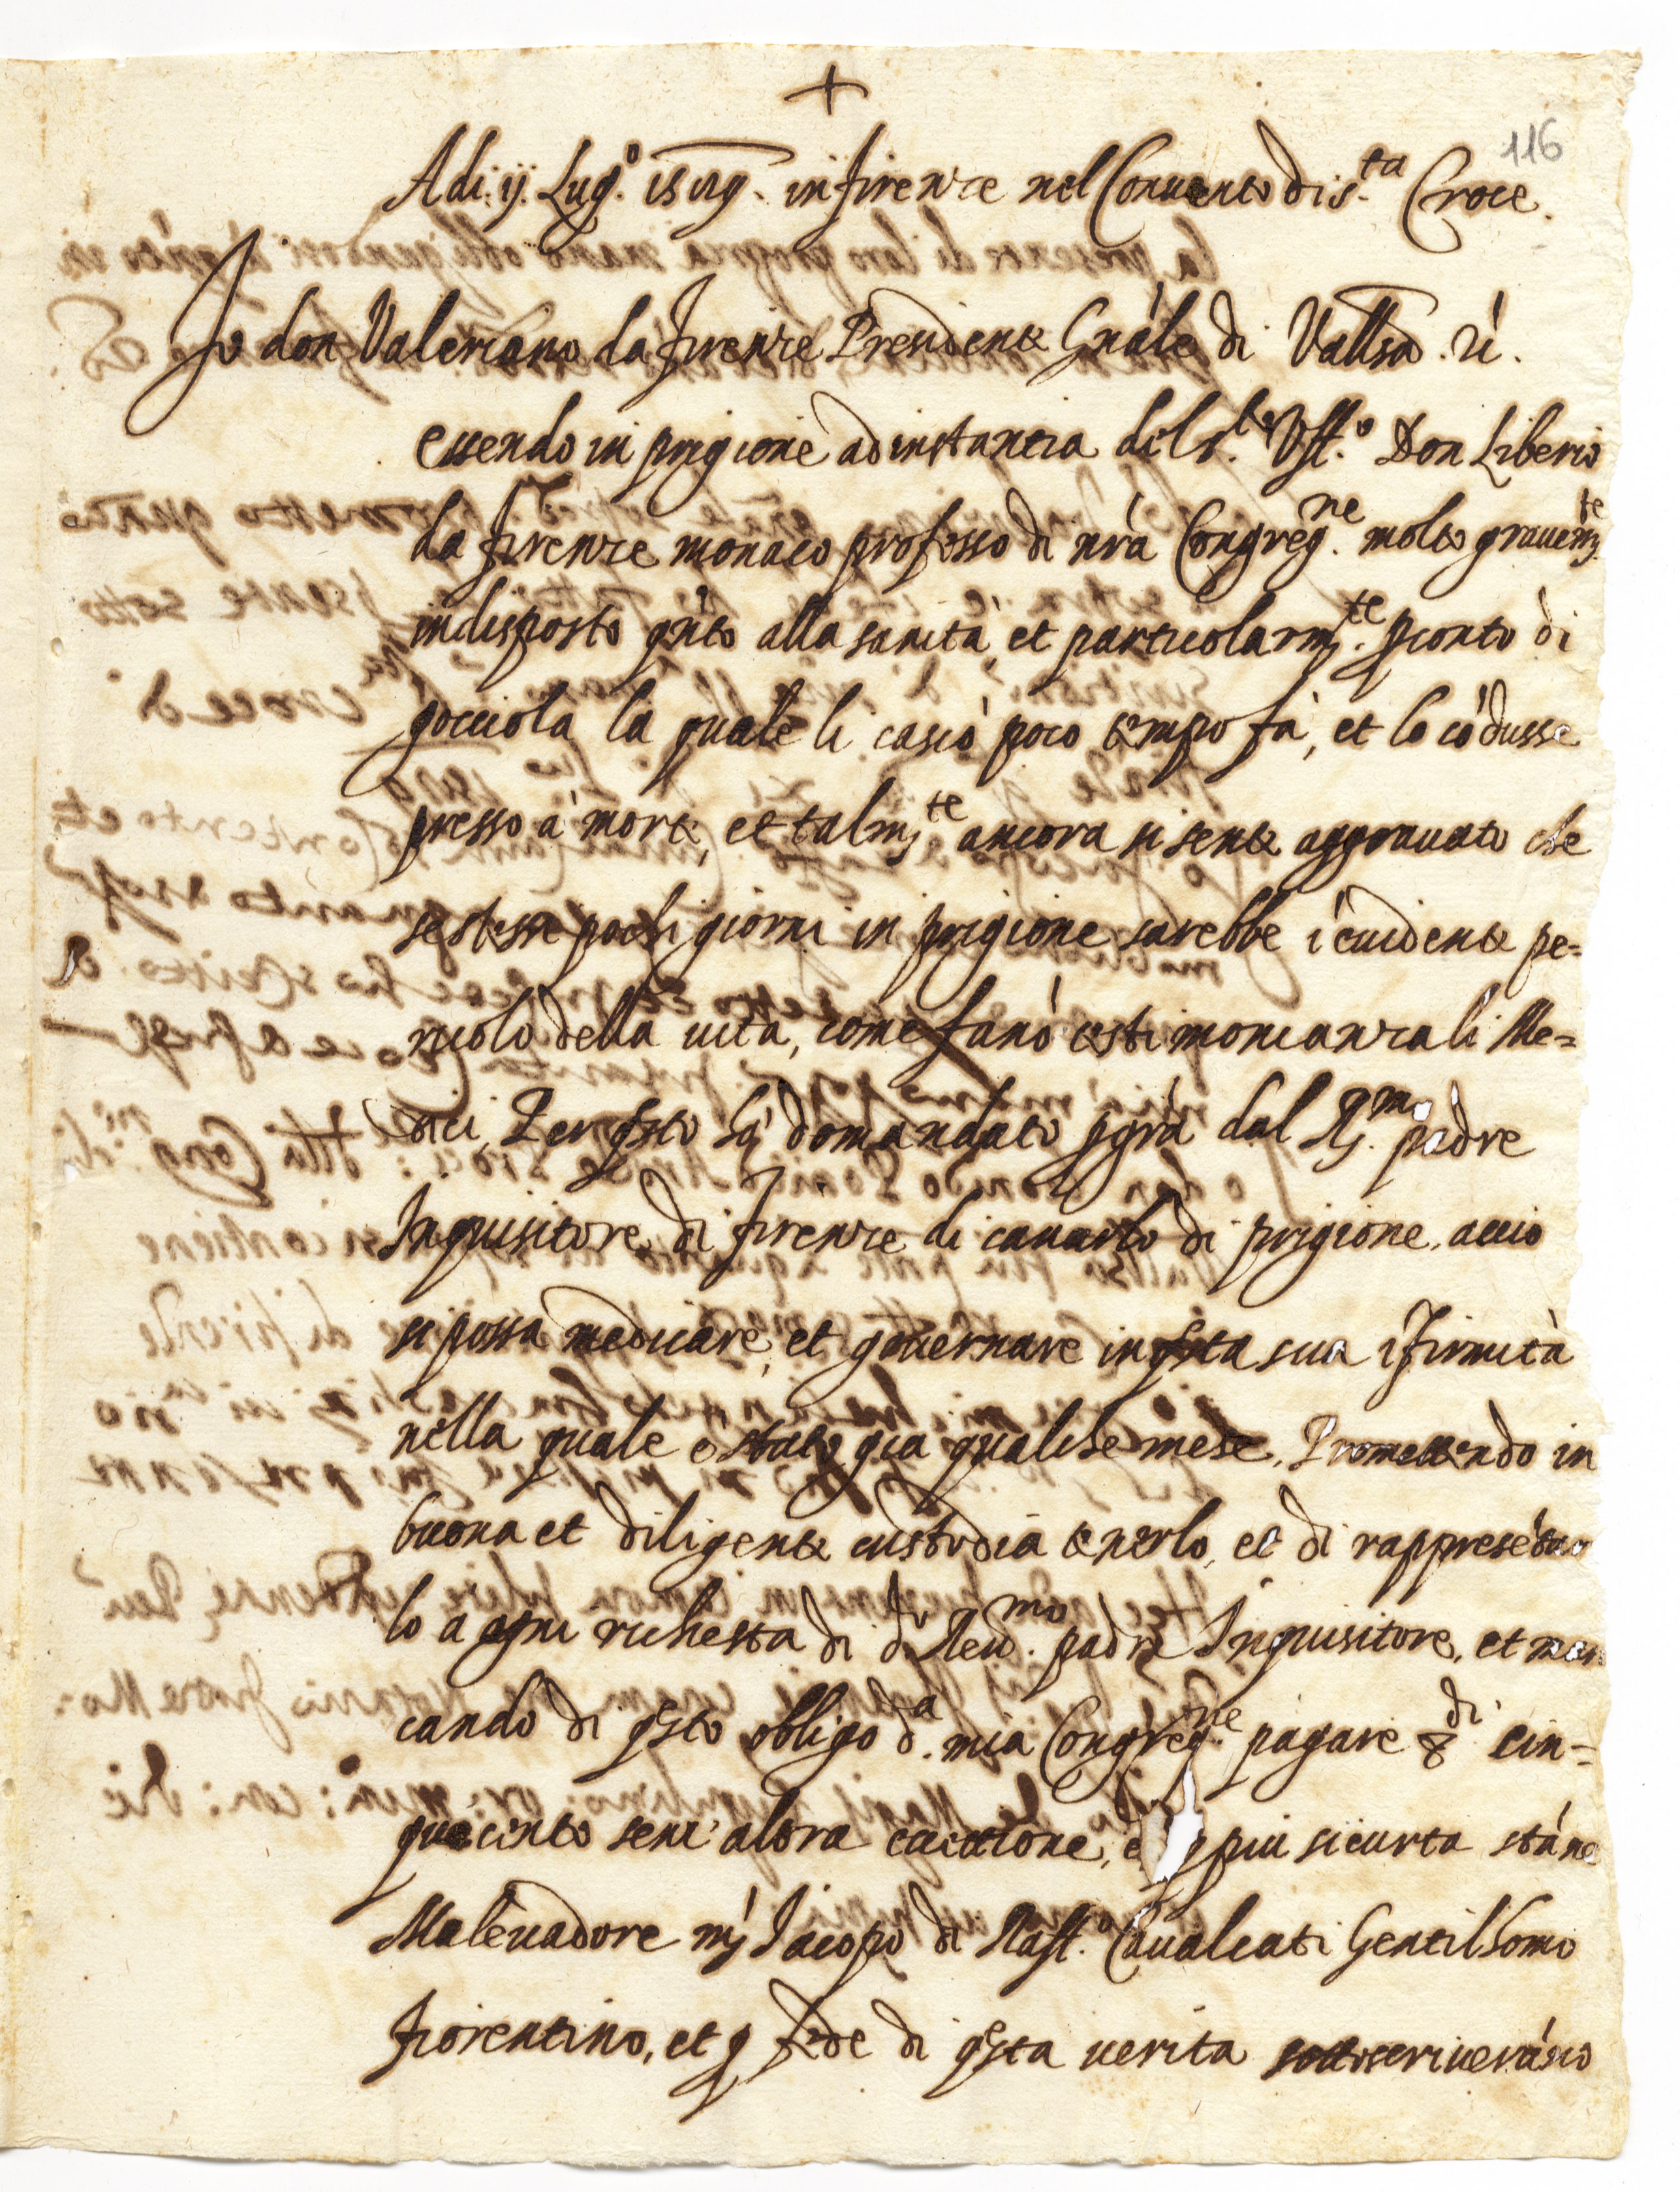 +
116
Adi. ij. Lug.o in firenze nel Conuento di s.ta Croce.
Io don Valeriano da firenze Presidente Gnãle di Vallsã.
essendo in prigione ad instantia del s.to Uff.o Don Liberio
da firenze monaco professo di nrã Congreg.ne molto grauem.te
indisposto qñto alla sanità, et particolarm.te sconto di
gocciola la quale li cascò poco tempo fà, et lo cõdusse
presso à morte, et talm.te ancora si sente aggrauato che
se stesse pochi giorni in prigione sarebbe ĩ euidente pe=
ricolo della uita, come fanò testimonianza li Me=
dici, Per q̃sto domandato grã dal R.mo padre
Inquisitore di firenze di cauarlo di prigione, acciò
si possa medicare, et gouernare in q̃sta sua ĩfirmità
nella quale è stato gia qualche mese, Promettendo in
buona et diligente custodia tenerlo, et di rappresẽtar
lo a ogni richiesta di d.o Reu.mo padre Inquisitore, et man
cando di q̃sto obligo d.a mia Congreg.ne pagare di cin=
quecento senz'altra cautione, p più sicurta stãne
Maleuadore Iacopo di Raff.o Caualcãti Gentilhomo
fiorentino, et p fede di q̃sta uerita sottoscriuerãno